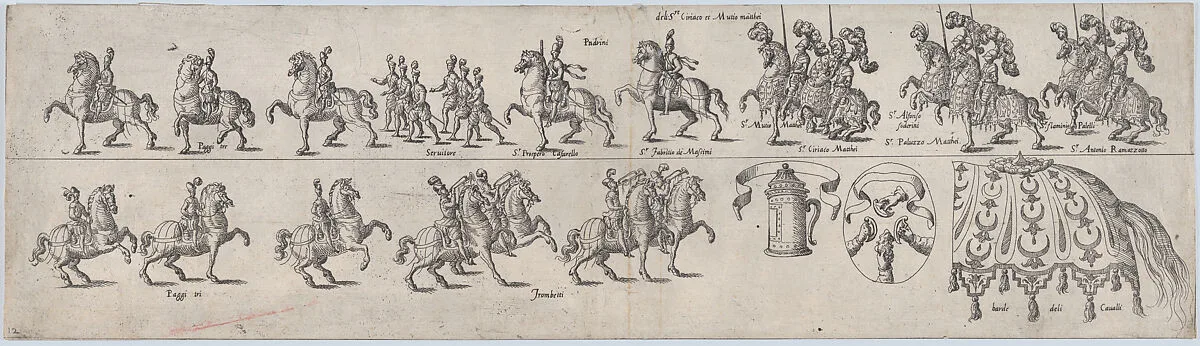 deli Sri Ciriaco et Mutio matthei
Padrini
Paggi tre
Servitore
Sr. Prospero Cafarello
Sr. Fabritio de Massimi
Sr. Mutio Matthei
Sr. Ciriaco Matthei
Sr. Alfonso
Soderini
Sr. Paluzzo Matthei
Sr. flaminio Palelli
Sr. Antonio Ramazzotto
Paggi tri
Trombetti
barde deli Cavalli
12